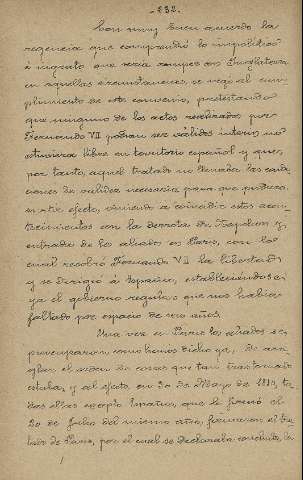 -232-
Con muy buen acuerdo la
regencia que comprendió lo impolitico
é ingrato que sería romper con Inglaterra
en aquellas circunstancias, se negó al cum-
plimiento de este convenio, protestando
que ninguno de los actos realizados por
Fernando VII podían ser válidos interin no
estuviera libre en territorio español y que,
por tanto, aquel tratado no llenaba las condi-
ciones de validez necesaria para que pudiera
surtir efecto, viniendo a coincidir estos acon-
tecimientos con la derrota de Napoleon y
entrada de los aliados en Paris, con lo
cual recobró Fernando VII la libertad
y se dirigió á España, estableciendose
ya el gobierno regular que nos había
faltado por espacio de seis años.
Una vez en Paris los aliados se
preocuparon, como hemos dicho ya, de arre-
glar el orden de cosas que tan trastornado
estaba, y al efecto, en 30 de Mayo de 1814, to-
dos ellos excepto España, que lo firmó el
20 de Julio del mismo año, firmaron el tra-
tado de Paris, por el cual se declaraba concluida la